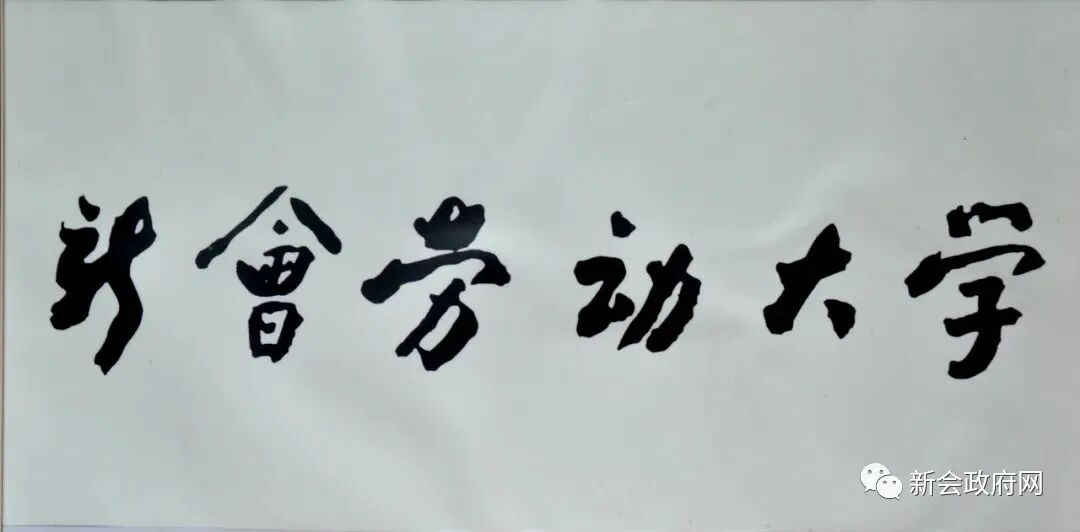 新會劳动大学
新会政府网